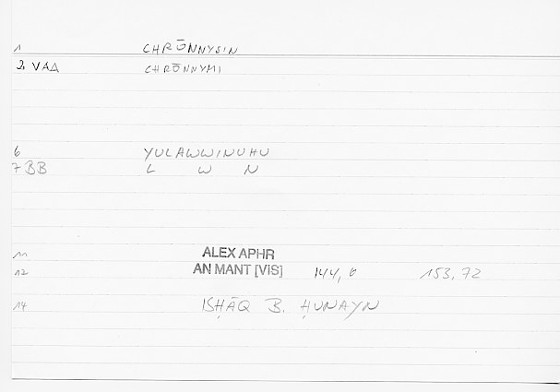 1 CHRŌNNYSIN
2. VAA CHRŌNNYMI
6 YULAWWINUHU
7 BB L W N
11 ALEX APHR
12 AN MANT [VIS] 144, 6 153, 72
14 ISḤĀQ B. ḤUNAYN